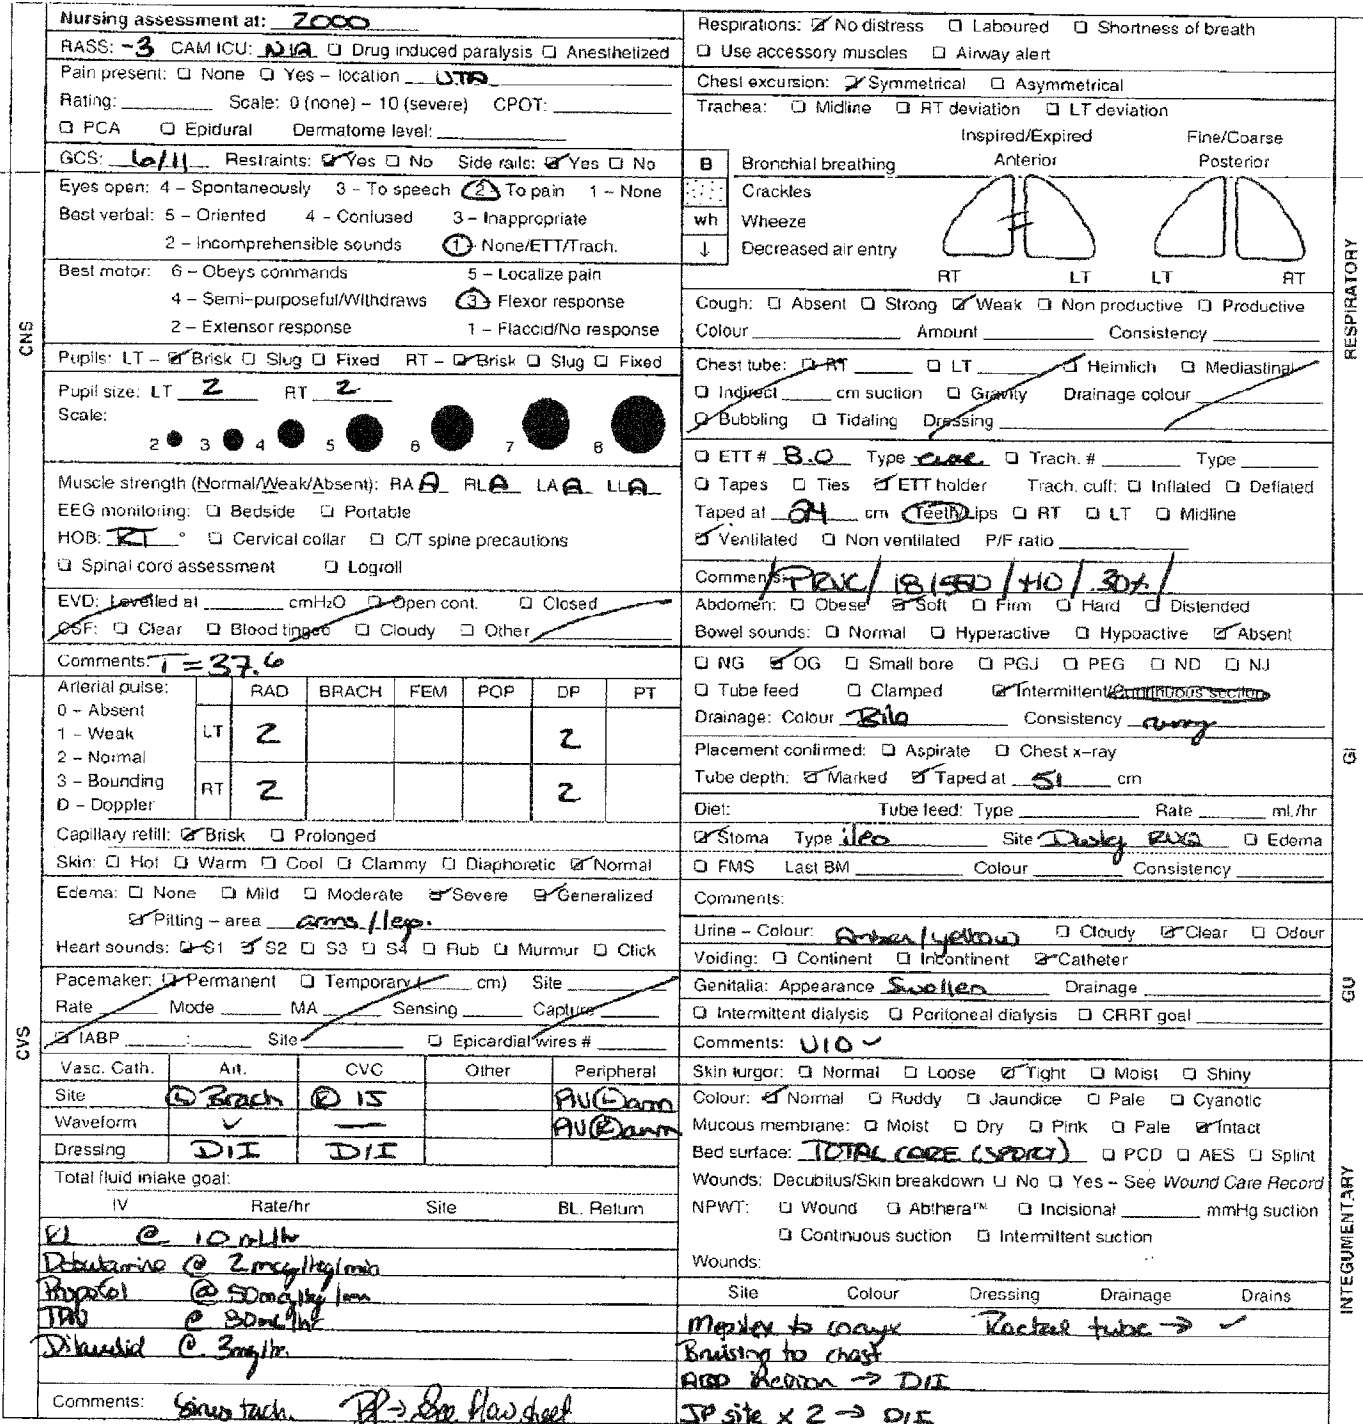 Nursing assessment at: 2000
RASS: -3 CAM ICU: N/A ☐ Drug induced paralysis ☐ Anesthetized
Pain present: ☐ None ☐ Yes – location UTA
Rating: ____ Scale: 0 (none) – 10 (severe) CPOT: ____
☐ PCA ☐ Epidural Dermatome level: ____
GCS: 6/11 Restraints: ☑ Yes ☐ No Side rails: ☑ Yes ☐ No
Eyes open: 4 – Spontaneously 3 – To speech 2 To pain 1 – None
Best verbal: 5 – Oriented 4 – Confused 3 – Inappropriate
2 – Incomprehensible sounds 1 – None/ETT/Trach.
Best motor: 6 – Obeys commands 5 – Localize pain
4 – Semi-purposeful/Withdraws 3 Flexor response
2 – Extensor response 1 – Flaccid/No response
Pupils: LT – ☑ Brisk ☐ Slug ☐ Fixed RT – ☑ Brisk ☐ Slug ☐ Fixed
Pupil size: LT 2 RT 2
Scale:
2 3 4 5 6 7 8
Muscle strength (Normal/Weak/Absent): RA A RLA LA A LLA
EEG monitoring: ☐ Bedside ☐ Portable
HOB: RT ° ☐ Cervical collar ☐ C/T spine precautions
☐ Spinal cord assessment ☐ Logroll
EVD: Levelled at ____ cmH₂O ☐ Open cont. ☐ Closed
CSF: ☐ Clear ☐ Blood tinged ☐ Cloudy ☐ Other ____
Comments: T = 37.6
CNS
Arterial pulse: RAD BRACH FEM POP DP PT
0 – Absent
1 – Weak LT 2 2
2 – Normal
3 – Bounding RT 2 2
D – Doppler
Capillary refill: ☑ Brisk ☐ Prolonged
Skin: ☐ Hot ☐ Warm ☐ Cool ☐ Clammy ☐ Diaphoretic ☑ Normal
Edema: ☐ None ☐ Mild ☐ Moderate ☑ Severe ☑ Generalized
☑ Pitting – area arms/legs.
Heart sounds: ☑ S1 ☑ S2 ☐ S3 ☐ S4 ☐ Rub ☐ Murmur ☐ Click
Pacemaker: ☐ Permanent ☐ Temporary (____ cm) Site ____
Rate ____ Mode ____ MA ____ Sensing ____ Capture ____
☐ IABP ____:____ Site ____ ☐ Epicardial wires # ____
Vasc. Cath. Art. CVC Other Peripheral
Site L Brach R IJ PIV L arm
Waveform ✓ — PIV R arm
Dressing D/I D/I
Total fluid intake goal:
IV Rate/hr Site BL. Return
@ 10 ml/hr
Dobutamine @ 2mcg/kg/min
Propofol @ 50mcg/kg/min
TPN @ 80mL/hr
Dilaudid @ 3mg/hr.
Comments: Sinus tach. BP → See flow sheet
CVS
Respirations: ☑ No distress ☐ Laboured ☐ Shortness of breath
☐ Use accessory muscles ☐ Airway alert
Chest excursion: ☑ Symmetrical ☐ Asymmetrical
Trachea: ☐ Midline ☐ RT deviation ☐ LT deviation
Inspired/Expired Fine/Coarse
B Bronchial breathing Anterior Posterior
Crackles
wh Wheeze
↓ Decreased air entry
RT LT LT RT
Cough: ☐ Absent ☐ Strong ☑ Weak ☐ Non productive ☐ Productive
Colour ____ Amount ____ Consistency ____
Chest tube: ☐ RT ____ ☐ LT ____ ☐ Heimlich ☐ Mediastinal
☐ Indirect ____ cm suction ☐ Gravity Drainage colour ____
☐ Bubbling ☐ Tidaling Dressing ____
☐ ETT # 8.0 Type evac ☐ Trach. # ____ Type ____
☐ Tapes ☐ Ties ☑ ETT holder Trach. cuff: ☐ Inflated ☐ Deflated
Taped at 24 cm Teeth/Lips ☐ RT ☐ LT ☐ Midline
☑ Ventilated ☐ Non ventilated P/F ratio ____
Comments: PRVC / 18/550 / +10 / .30%
RESPIRATORY
Abdomen: ☐ Obese ☑ Soft ☐ Firm ☐ Hard ☐ Distended
Bowel sounds: ☐ Normal ☐ Hyperactive ☐ Hypoactive ☑ Absent
☐ NG ☑ OG ☐ Small bore ☐ PGJ ☐ PEG ☐ ND ☐ NJ
☐ Tube feed ☐ Clamped ☑ Intermittent/Continuous suction
Drainage: Colour Bile Consistency runny
Placement confirmed: ☐ Aspirate ☐ Chest x-ray
Tube depth: ☑ Marked ☑ Taped at 51 cm
Diet: Tube feed: Type ____ Rate ____ mL/hr
☑ Stoma Type ileo Site Dusky RUQ ☐ Edema
☐ FMS Last BM ____ Colour ____ Consistency ____
Comments:
GI
Urine – Colour: Amber/yellow ☐ Cloudy ☑ Clear ☐ Odour
Voiding: ☐ Continent ☐ Incontinent ☑ Catheter
Genitalia: Appearance Swollen Drainage ____
☐ Intermittent dialysis ☐ Peritoneal dialysis ☐ CRRT goal ____
Comments: U/O ✓
GU
Skin turgor: ☐ Normal ☐ Loose ☑ Tight ☐ Moist ☐ Shiny
Colour: ☑ Normal ☐ Ruddy ☐ Jaundice ☐ Pale ☐ Cyanotic
Mucous membrane: ☐ Moist ☐ Dry ☐ Pink ☐ Pale ☑ Intact
Bed surface: TOTAL CARE (SPORT) ☐ PCD ☐ AES ☐ Splint
Wounds: Decubitus/Skin breakdown ☐ No ☐ Yes – See Wound Care Record
NPWT: ☐ Wound ☐ Abthera™ ☐ Incisional ____ mmHg suction
☐ Continuous suction ☐ Intermittent suction
Wounds:
Site Colour Dressing Drainage Drains
Mepilex to coccyx Rectal tube → ✓
Bruising to chest
ABD incision → D/I
JP site x 2 → D/I
INTEGUMENTARY